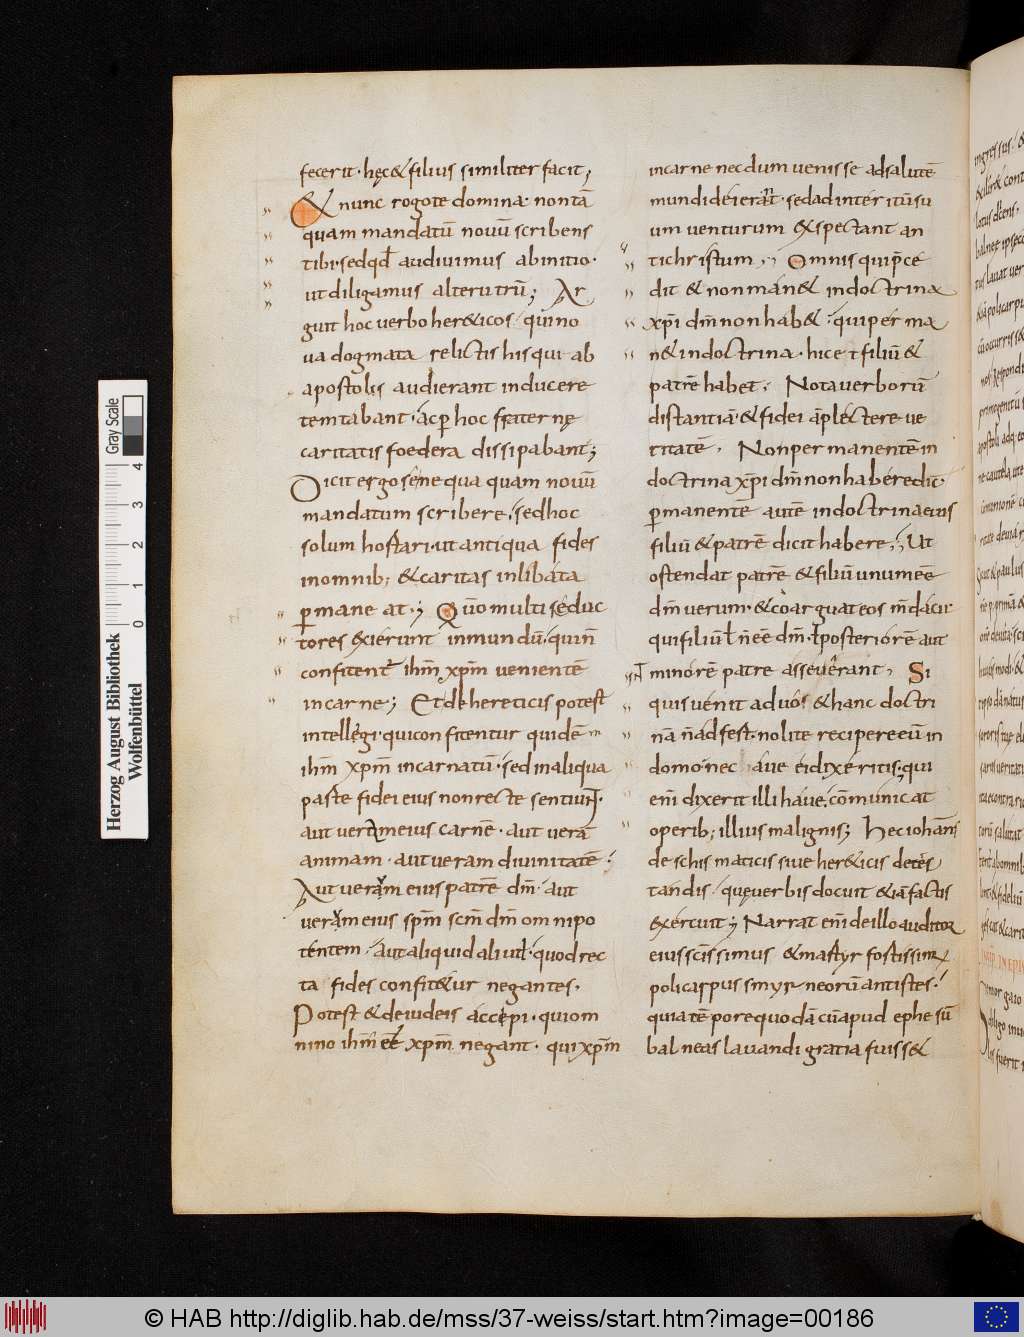 fecerit· hęc & filius similiter facit;
& nunc rogote domina· non tā
quam mandatū nouū scribens
tibi· sed qđ audiuimus abinitio·
ut diligamus alterutrū; Ar
guit hoc uerbo her&icos· qui no
ua dogmata relictis his qui ab
apostolis audierant inducere
temtabant· ac ꝑ hoc fraternę
caritatis foedera dissipabant;
Dicit ergo se neque quam nouū
mandatum scribere· sed hoc
solum hortari· ut antiqua fides
in omnib; & caritas inlibata
ꝑmane at·; Quō multi seduc
tores exierunt in mundū· qui n̄
confitent̄ ihm̄ xp̄m uenientē
in carne; Et de hereticis potest
intellegi· qui confitentur quidē
ihm̄ xp̄m incarnatū· sed in aliqua
parte fidei eius non recte sentiun̄t·
aut ueram eius carnē· aut uerā
animam· aut ueram diuinitatē·
Aut ueram eius patrē dm̄· aut
ueram eius sp̄m scm̄ dm̄ omnipo
tentem· aut aliquid aliud· quod rec
ta fides confit&ur negantes·
Potest & de iudeis accepi· qui om
nino ihm̄ eē xp̄m negant· qui xp̄m
in carne necdum uenisse ad salutē
mundi dei erāt· sed ad interitū su
um uenturum &spectant an
tichristum; Omnis qui p̄ce
dit & non man& in doctrina
xp̄i dm̄ non hab&· qui per ma
n& in doctrina· hic et filiū &
patrē habet· Nota uerborū
distantiā· & fidei āplectere ue
ritatē· Non permanentē in
doctrina xp̄i dm̄ non habere dīc·
ꝑmanentē autē in doctrina eius
filiū & patrē dicit habere; Ut
ostendat patrē & filiū unum eē
dm̄ uerum· & coarguat eos m̄dacii·
qui filiū ł n̄ eē dm̄· ł posteriorē aut
minorē patre asseuerant· Si
quis uenit ad uos & hanc doctri
nā n̄ adfest· nolite recipere eū in
domo· nec aue ei dixeritis· qui
enī dixerit illi haue· cōmunicat
operib; illius malignis; Hec iohānis
de schismaticis siue her&icis detes
tandis· quę uerbis docuit & iā factis
exercuit; Narrat enī de illo auditor
eius scissimus & martyr fortissim
policarpus smyrneorū antistes·
quia tēpore quodā cū apud ephesū
balneas lauandi gratia fuiss&
Herzog August Bibliothek
Wolfenbüttel
0 1 2 3 4
Gray Scale
© HAB http://diglib.hab.de/mss/37-weiss/start.htm?image=00186